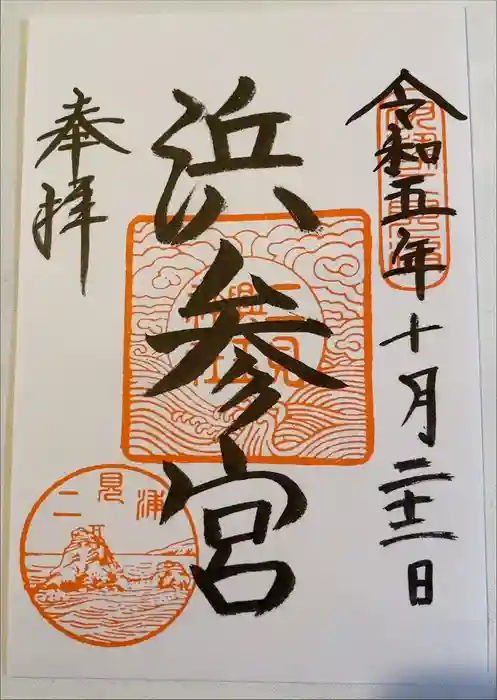 令和五年十月二十二日
浜参宮
奉拝
二見
興玉
神社
二見浦